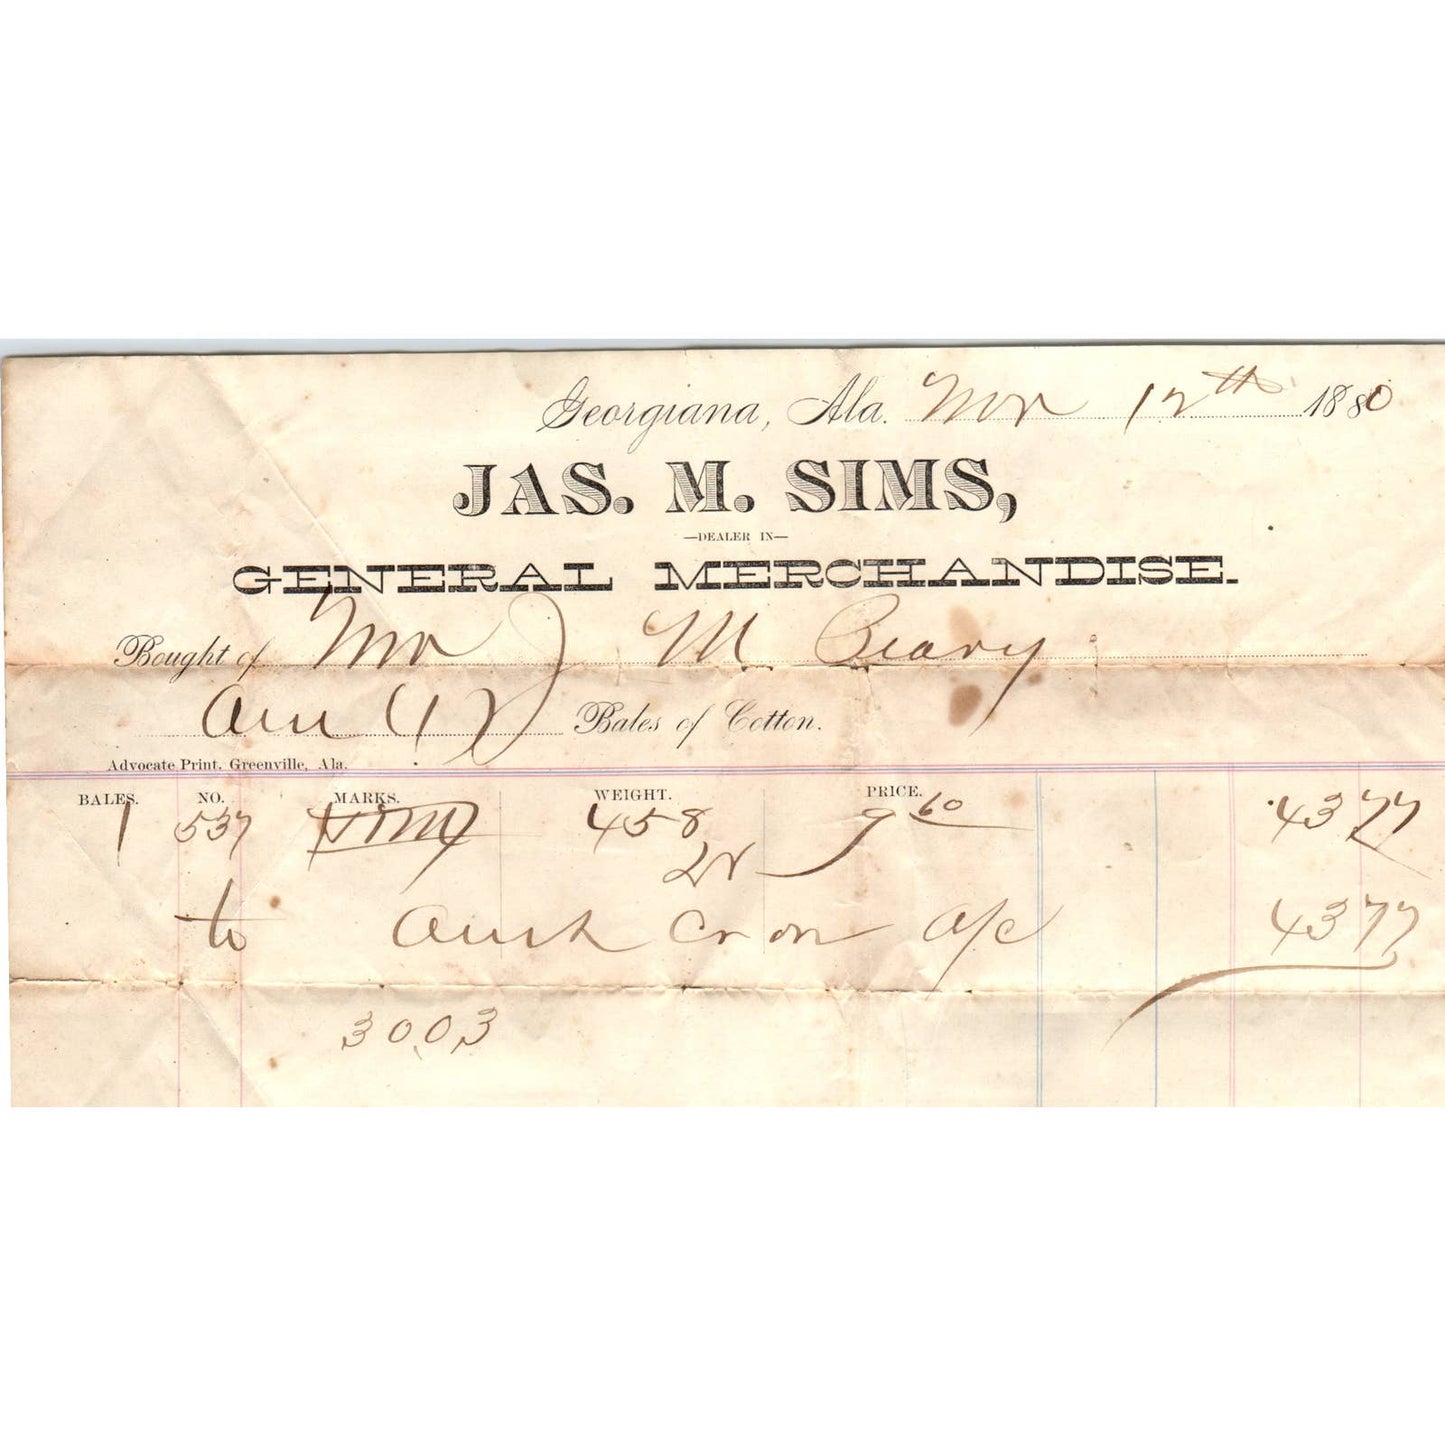 Georgiana, Ala. Nov 12th 1880
JAS. M. SIMS,
—DEALER IN—
GENERAL MERCHANDISE.
Bought of Mr J M. Beary
Bales of Cotton.
Advocate Print. Greenville, Ala.
BALES. NO. MARKS. WEIGHT. PRICE.
1 537 458 9 60 43 77
to Cr on a/c 43 77
3003